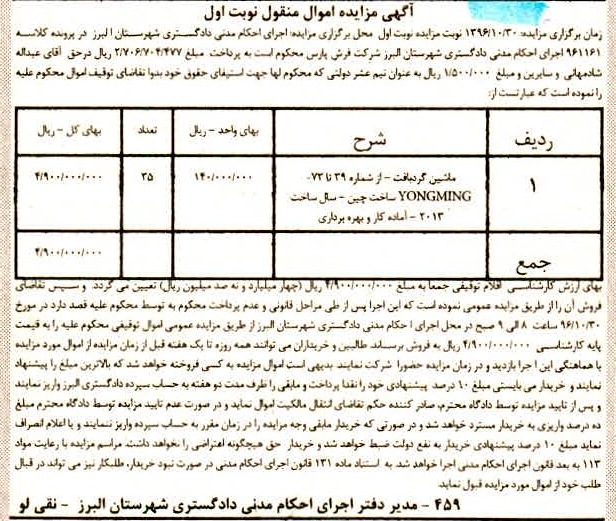 آگهی مزایده اموال منقول نوبت اول
زمان برگزاری مزایده: ۱۳۹۶/۱۰/۳۰ نوبت مزایده نوبت اول محل برگزاری مزایده: اجرای احکام مدنی دادگستری شهرستان البرز در پرونده کلاسه
۹۶۱۱۶۱ اجرای احکام مدنی دادگستری شهرستان البرز شرکت فرش پارس محکوم است به پرداخت مبلغ ۲/۷۰۶/۷۰۴/۴۷۷ ریال درحق آقای عبداله
شادمهانی و سایرین و مبلغ ۱/۵۰۰/۰۰۰ ریال به عنوان نیم عشر دولتی که محکوم لها جهت استیفای حقوق خود بدوا تقاضای توقیف اموال محکوم علیه
را نموده است که عبارتست از:
ردیف شرح بهای واحد – ریال تعداد بهای کل – ریال
ماشین گردبافت – از شماره ۳۹ تا ۷۳-
۱ YONGMING ساخت چین – سال ساخت ۱۴۰/۰۰۰/۰۰۰ ۳۵ ۴/۹۰۰/۰۰۰/۰۰۰
۲۰۱۳ – آماده کار و بهره برداری
جمع ۴/۹۰۰/۰۰۰/۰۰۰
بهای ارزش کارشناسی اقلام توقیفی جمعا به مبلغ ۴/۹۰۰/۰۰۰/۰۰۰ ریال (چهار میلیارد و نه صد میلیون ریال) تعیین می گردد. و سپس تقاضای
فروش آن را از طریق مزایده عمومی نموده است که این اجرا پس از طی مراحل قانونی و عدم پرداخت محکوم به توسط محکوم علیه قصد دارد در مورخ
۹۶/۱۰/۳۰ ساعت ۸ الی ۹ صبح در محل اجرای احکام مدنی دادگستری شهرستان البرز از طریق مزایده عمومی اموال توقیفی محکوم علیه را به قیمت
پایه کارشناسی ۴/۹۰۰/۰۰۰/۰۰۰ ریال به فروش برساند. طالبین و خریداران می توانند همه روزه تا یک هفته قبل از زمان مزایده از اموال مورد مزایده
با هماهنگی این اجرا بازدید و در زمان مزایده حضورا شرکت نمایند بدیهی است اموال مزایده به کسی فروخته خواهد شد که بالاترین مبلغ را پیشنهاد
نمایند و خریدار می بایستی مبلغ ۱۰ درصد پیشنهادی خود را نقدا پرداخت و مابقی را ظرف مدت دو هفته به حساب سپرده دادگستری البرز واریز نمایند
و پس از تایید مزایده توسط دادگاه محترم، صادر کننده حکم تقاضای انتقال مالکیت اموال نماید و در صورت عدم تایید مزایده توسط دادگاه محترم مبلغ
ده درصد واریزی به خریدار مسترد خواهد شد و در صورتی که خریدار مابقی وجه مزایده را در زمان مقرر به حساب سپرده واریز ننمایند و یا اعلام انصراف
نماید مبلغ ۱۰ درصد پیشنهادی خریدار به نفع دولت ضبط خواهد شد و خریدار حق هیچگونه اعتراضی را نخواهد داشت. مراسم مزایده با رعایت مواد
۱۱۳ به بعد قانون اجرای احکام مدنی اجرا خواهد شد. به استناد ماده ۱۳۱ قانون اجرای احکام مدنی در صورت نبود خریدار، طلبکار نیز می تواند در قبال
طلب خود از اموال مورد مزایده قبول نماید.
۴۵۹ – مدیر دفتر اجرای احکام مدنی دادگستری شهرستان البرز – نقی لو